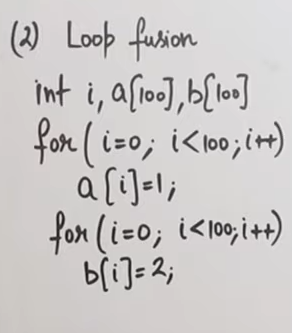 (2) Loop fusion
int i, a[100], b[100]
for( i=0; i<100; i++)
a[i]=1;
for (i=0; i<100; i++)
b[i]=2;